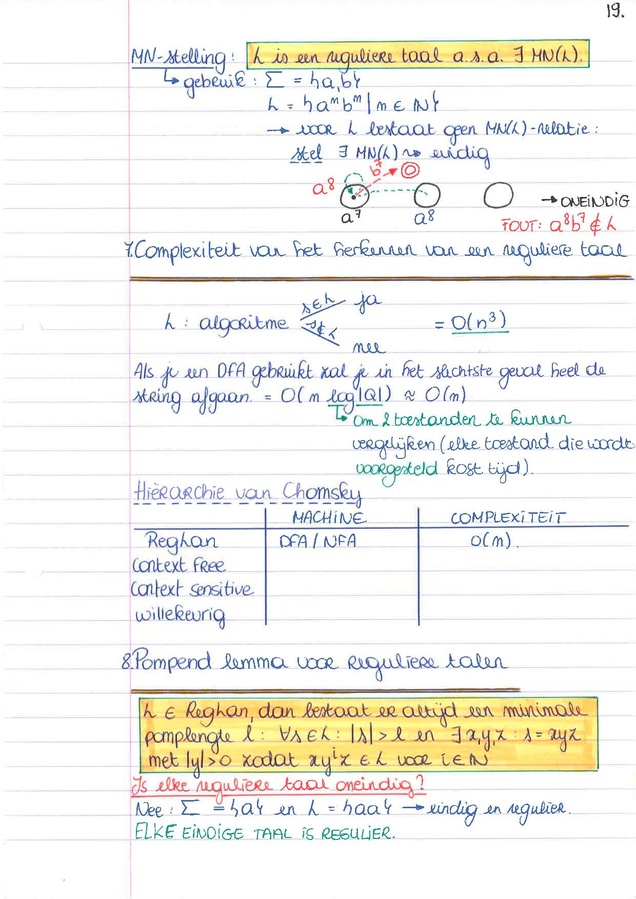 19.
MN-stelling: L is een reguliere taal a.s.a. ∃ MN(L).
↳ gebruik: Σ = {a,b}
L = {aⁿbⁿ | n ∈ ℕ}
→ voor L bestaat geen MN(L)-relatie:
stel ∃ MN(L) ⇝ eindig
a⁸ b⁷
a⁷ a⁸ → ONEINDIG
FOUT: a⁸b⁷ ∉ L
7. Complexiteit van het herkennen van een reguliere taal
s∈L ja
L: algoritme = O(n³)
s∉L nee
Als je een DFA gebruikt zal je in het slechtste geval heel de
string afgaan. = O(n log|Q|) ≈ O(n)
↳ om 2 toestanden te kunnen
vergelijken (elke toestand die wordt
voorgesteld kost tijd).
Hiërarchie van Chomsky
MACHINE COMPLEXITEIT
Reglan DFA / NFA O(n).
Context free
Context sensitive
willekeurig
8. Pompend lemma voor reguliere talen
L ∈ Reglan, dan bestaat er altijd een minimale
pomplengte l: ∀s∈L: |s| > l en ∃x,y,z: s = xyz
met |y|>0 zodat xyⁱz ∈ L voor i∈ℕ
Is elke reguliere taal oneindig?
Nee: Σ = {a} en L = {aa} → eindig en regulier.
ELKE EINDIGE TAAL IS REGULIER.